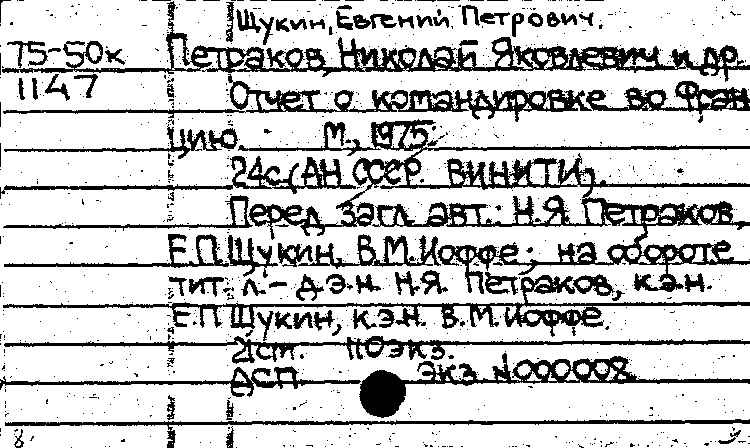 Щукин, Евгений Петрович.
75-50к Петраков, Николай Яковлевич и др.
1147 Отчет о командировке во Фран
цию. М., 1975.
24с. (АН СССР. ВИНИТИ).
Перед загл. авт.: Н.Я. Петраков,
Е.П. Щукин, В.М. Иоффе; на обороте
тит. л. - д.э.н. Н.Я. Петраков, к.э.н.
Е.П. Щукин, к.э.н. В.М. Иоффе.
21ст. 110 экз.
ДСП. Экз. N000008